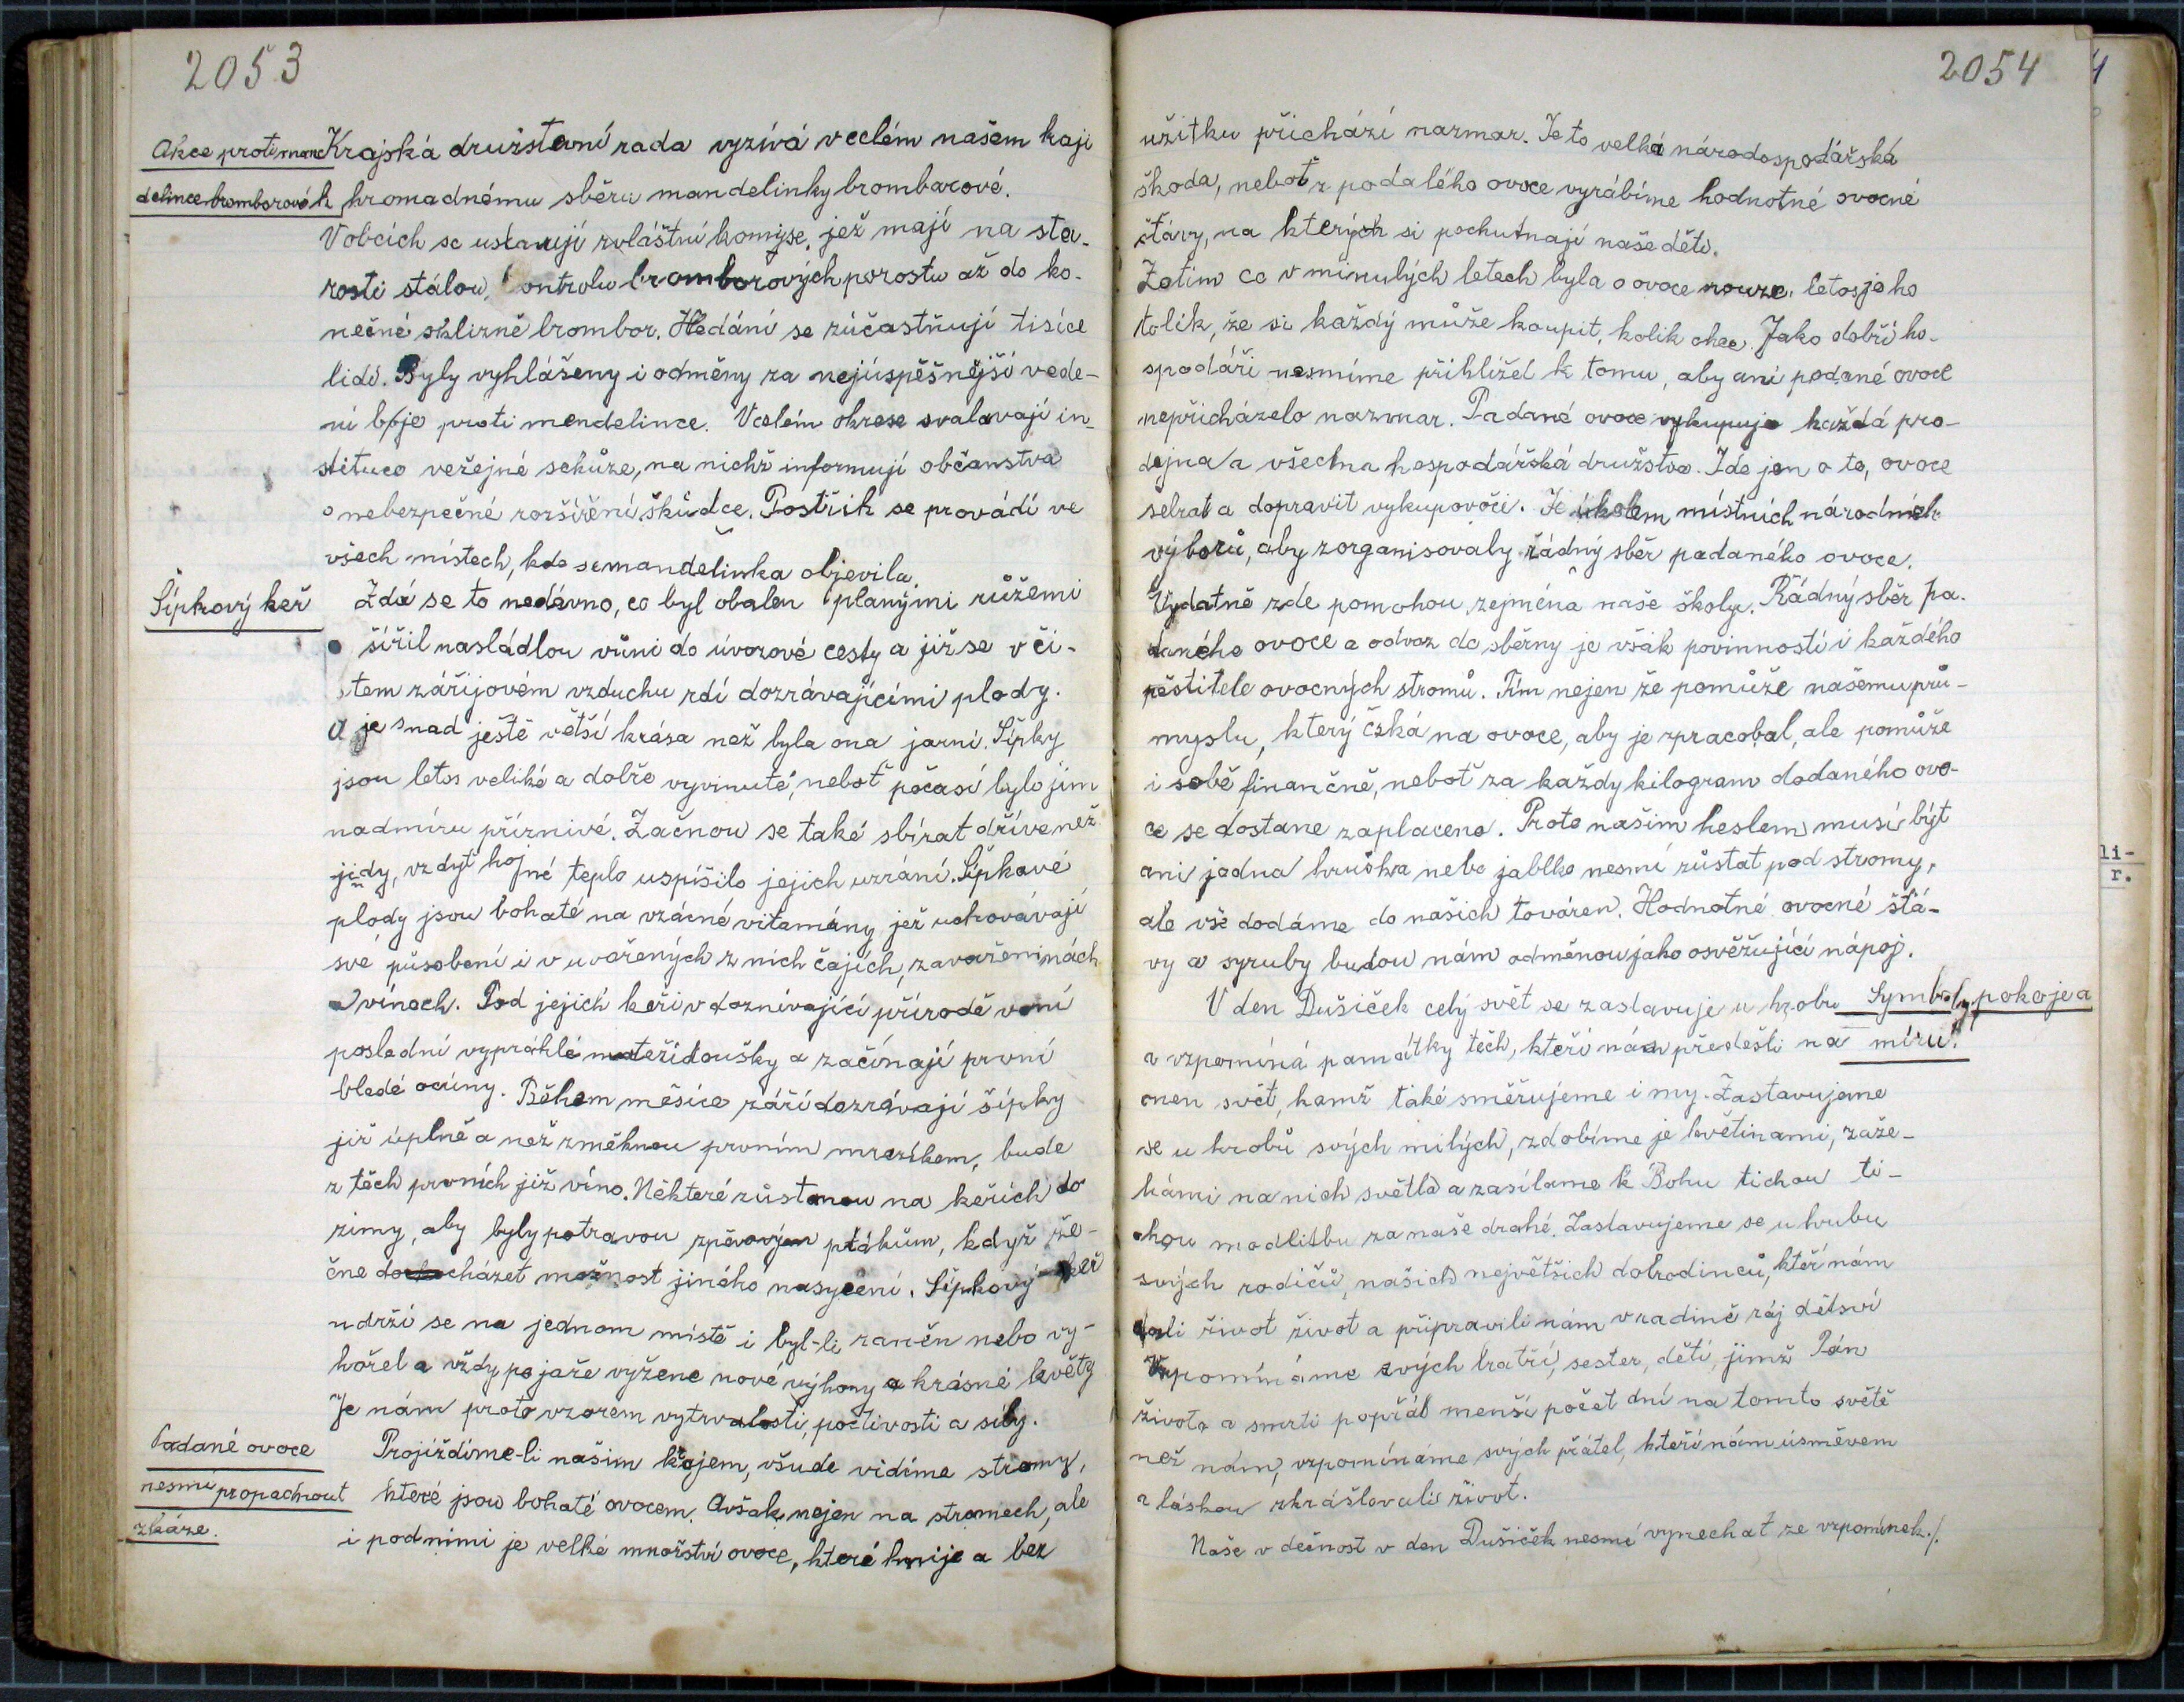 2053
Akce proti man
delince bromborové
Krajská družstaní rada vyzívá v celém našem kraji
k hromadnému sběru mandelinky brombarové.
V obcích se ustavují zvláštní komyse, jež mají na sta-
rosti stálou, kontrolu bromborových porostu až do ko-
nečné sklizně brombor. Hledání se zúčastňují tisíce
lidí. Byly vyhlášeny i odměny za nejúspěšnější vede-
ní boje proti mendelince. V celém okrese svalavají in-
stituce veřejné schůze, na nichž informují občanstvo
o nebezpečné rozšíření škůdce. Postřik se provádí ve
všech místech, kde se mandelinka objevila.
Šípkový keř
Zdá se to nedávno, co byl obalen planými růžemi
šířil nasládlou vůni do úvozové cesty a již se v či-
tem zářijovém vzduchu rdí dozrávajícími plody.
a je snad ještě větší krása než byla ona jarní. Šípky
jsou letos veliké a dobře vyvinuté, neboť počasí bylo jim
nadmíru příznivé. Začnou se také sbírat dříve než
jindy, vzdyť hojné teplo uspíšilo jejich uzrání. Šípkové
plody jsou bohaté na vzácné vitamány jež uchovávají
své působení i v uvařených z nich čajích, zavařeninách
a vínech. Pod jejich keři v doznívající přírodě voní
poslední vyprahlé mateřídoušky a začínají první
bledé ocúny. Během měsíce září dozrávají šípky
již úplně a než změknou prvním mrazíkem, bude
z těch prvních již víno. Některé zůstanou na keřích do
zimy, aby byly potravou zpěvovým ptákům, když že-
čne docházet možnost jiného nasycení. Šípkový keř
udrží se na jednom místě i byl-li raněn nebo vy-
hořel a vždy po jaře vyžene nové výhony a krásné květy
Je nám proto vzorem vytrvalosti, poctivosti a síly.
Padané ovoce
nesmí propachnout
zkáze.
Projíždíme-li našim krajem, všude vidíme stromy,
které jsou bohaté ovocem. Avšak nejen na stromech, ale
i pod nimi je velké množství ovoce, které hnije a bez
2054
užitku přichází nazmar. Je to velká národospodářská
škoda, neboť z podalého ovoce vyrábíme hodnotné ovocné
štávy, na kterých si pochutnají naše děti.
Zatím co v minulých letech byla o ovoce nouze, letos je ho
tolik, že si každý může koupit, kolik chce. Jako dobří ho-
spodáři nesmíme přihlížel k tomu, aby ani podané ovoce
nepřicházelo nazmar. Padané ovoce vykupuje každá pro-
dejna a všechna hospodářská družstva. Jde jen o to, ovoce
sebrat a dopravit vykupovači. Je úkolem místních národních
výborů, aby zorganisovaly řádný sběr padaného ovoce.
Vydatně zde pomohou, zejména naše školy. Řádný sběr pa-
daného ovoce a odvoz do sběrny je však povinností i každého
pěstitele ovocných stromů. Tím nejen že pomůže našemu prů-
myslu, který čská na ovoce, aby je zpracobal, ale pomůže
i sobě finančně, neboť za každy kilogram dodaného ovo-
ce se dostane zaplaceno. Proto našim heslem musí být
ani jedna hruška nebo jablko nesmí zůstat pod stromy,
ale vše dodáme do našich továren. Hodnotné ovocné štá-
vy a syruby budou nám odměnou jako osvěžující nápoj.
Symboly pokoje a
míru!
V den Dušiček celý svět se zastavuje u hrobu
a vzpomíná památky těch, kteří nám předešli na
onen svět, kamž také směřujeme i my. Zastavujeme
se u hrobů svých milých, zdobíme je květinami, zaže-
hámi na nich světla a zasílame k Bohu tichou ti-
chou modlitbu za naše drahé. Zastavujeme se u hrubu
svých rodičů, našich největšich dobrodinců, kteří nám
dali život život a připravili nám v radině ráj dětsví
Vzpomínáme svých bratří, sester, dětí, jimž Pán
života a smrti popřál menší počet dní na tomto světě
než nám, vzpomínáme svých přátel, kteří nám úsměvem
a láskou zkrášlovali život.
Naše v děčnost v den Dušiček nesmí vynechat ze vzpomínek./.
li-
r.